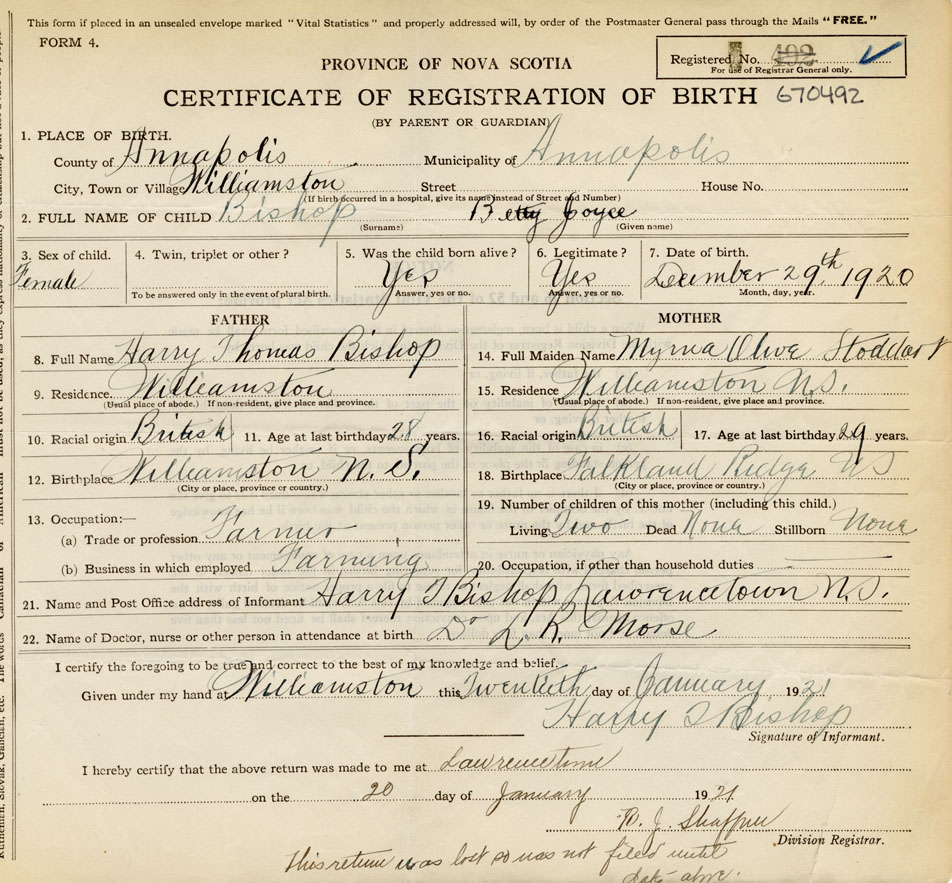 This form if placed in an unsealed envelope marked "Vital Statistics" and properly addressed will, by order of the Postmaster General pass through the Mails "FREE."
FORM 4.
Registered No. 492
For use of Registrar General only.
PROVINCE OF NOVA SCOTIA
CERTIFICATE OF REGISTRATION OF BIRTH 670492
(BY PARENT OR GUARDIAN)
1. PLACE OF BIRTH.
County of Annapolis Municipality of Annapolis
City, Town or Village Williamston Street House No.
(If birth occurred in a hospital, give its name instead of Street and Number)
2. FULL NAME OF CHILD Bishop Betty Joyce
(Surname) (Given name)
3. Sex of child. 4. Twin, triplet or other? 5. Was the child born alive? 6. Legitimate? 7. Date of birth.
Female Yes Yes December 29th, 1920
To be answered only in the event of plural birth. Answer, yes or no. Answer, yes or no. Month, day, year.
FATHER MOTHER
8. Full Name Harry Thomas Bishop 14. Full Maiden Name Myrna Olive Stoddart
9. Residence. Williamston 15. Residence Williamston N.S.
(Usual place of abode.) If non-resident, give place and province. (Usual place of abode.) If non-resident, give place and province.
10. Racial origin British 11. Age at last birthday 28 years. 16. Racial origin British 17. Age at last birthday 29 years.
12. Birthplace Williamston N. S. 18. Birthplace Falkland Ridge NS
(City or place, province or country.) (City or place, province or country.)
13. Occupation:— 19. Number of children of this mother (including this child.)
(a) Trade or profession Farmer Living Two Dead None Stillborn None
(b) Business in which employed Farming 20. Occupation, if other than household duties
21. Name and Post Office address of Informant Harry T Bishop Lawrencetown N.S.
22. Name of Doctor, nurse or other person in attendance at birth Dr L. R. Morse
I certify the foregoing to be true and correct to the best of my knowledge and belief.
Given under my hand at Williamston this Twentieth day of January 1921
Harry T Bishop
Signature of Informant.
I hereby certify that the above return was made to me at Lawrencetown
on the 20 day of January 1921
B. J. Shaffner
Division Registrar.
This return was lost so was not filed until
date above.